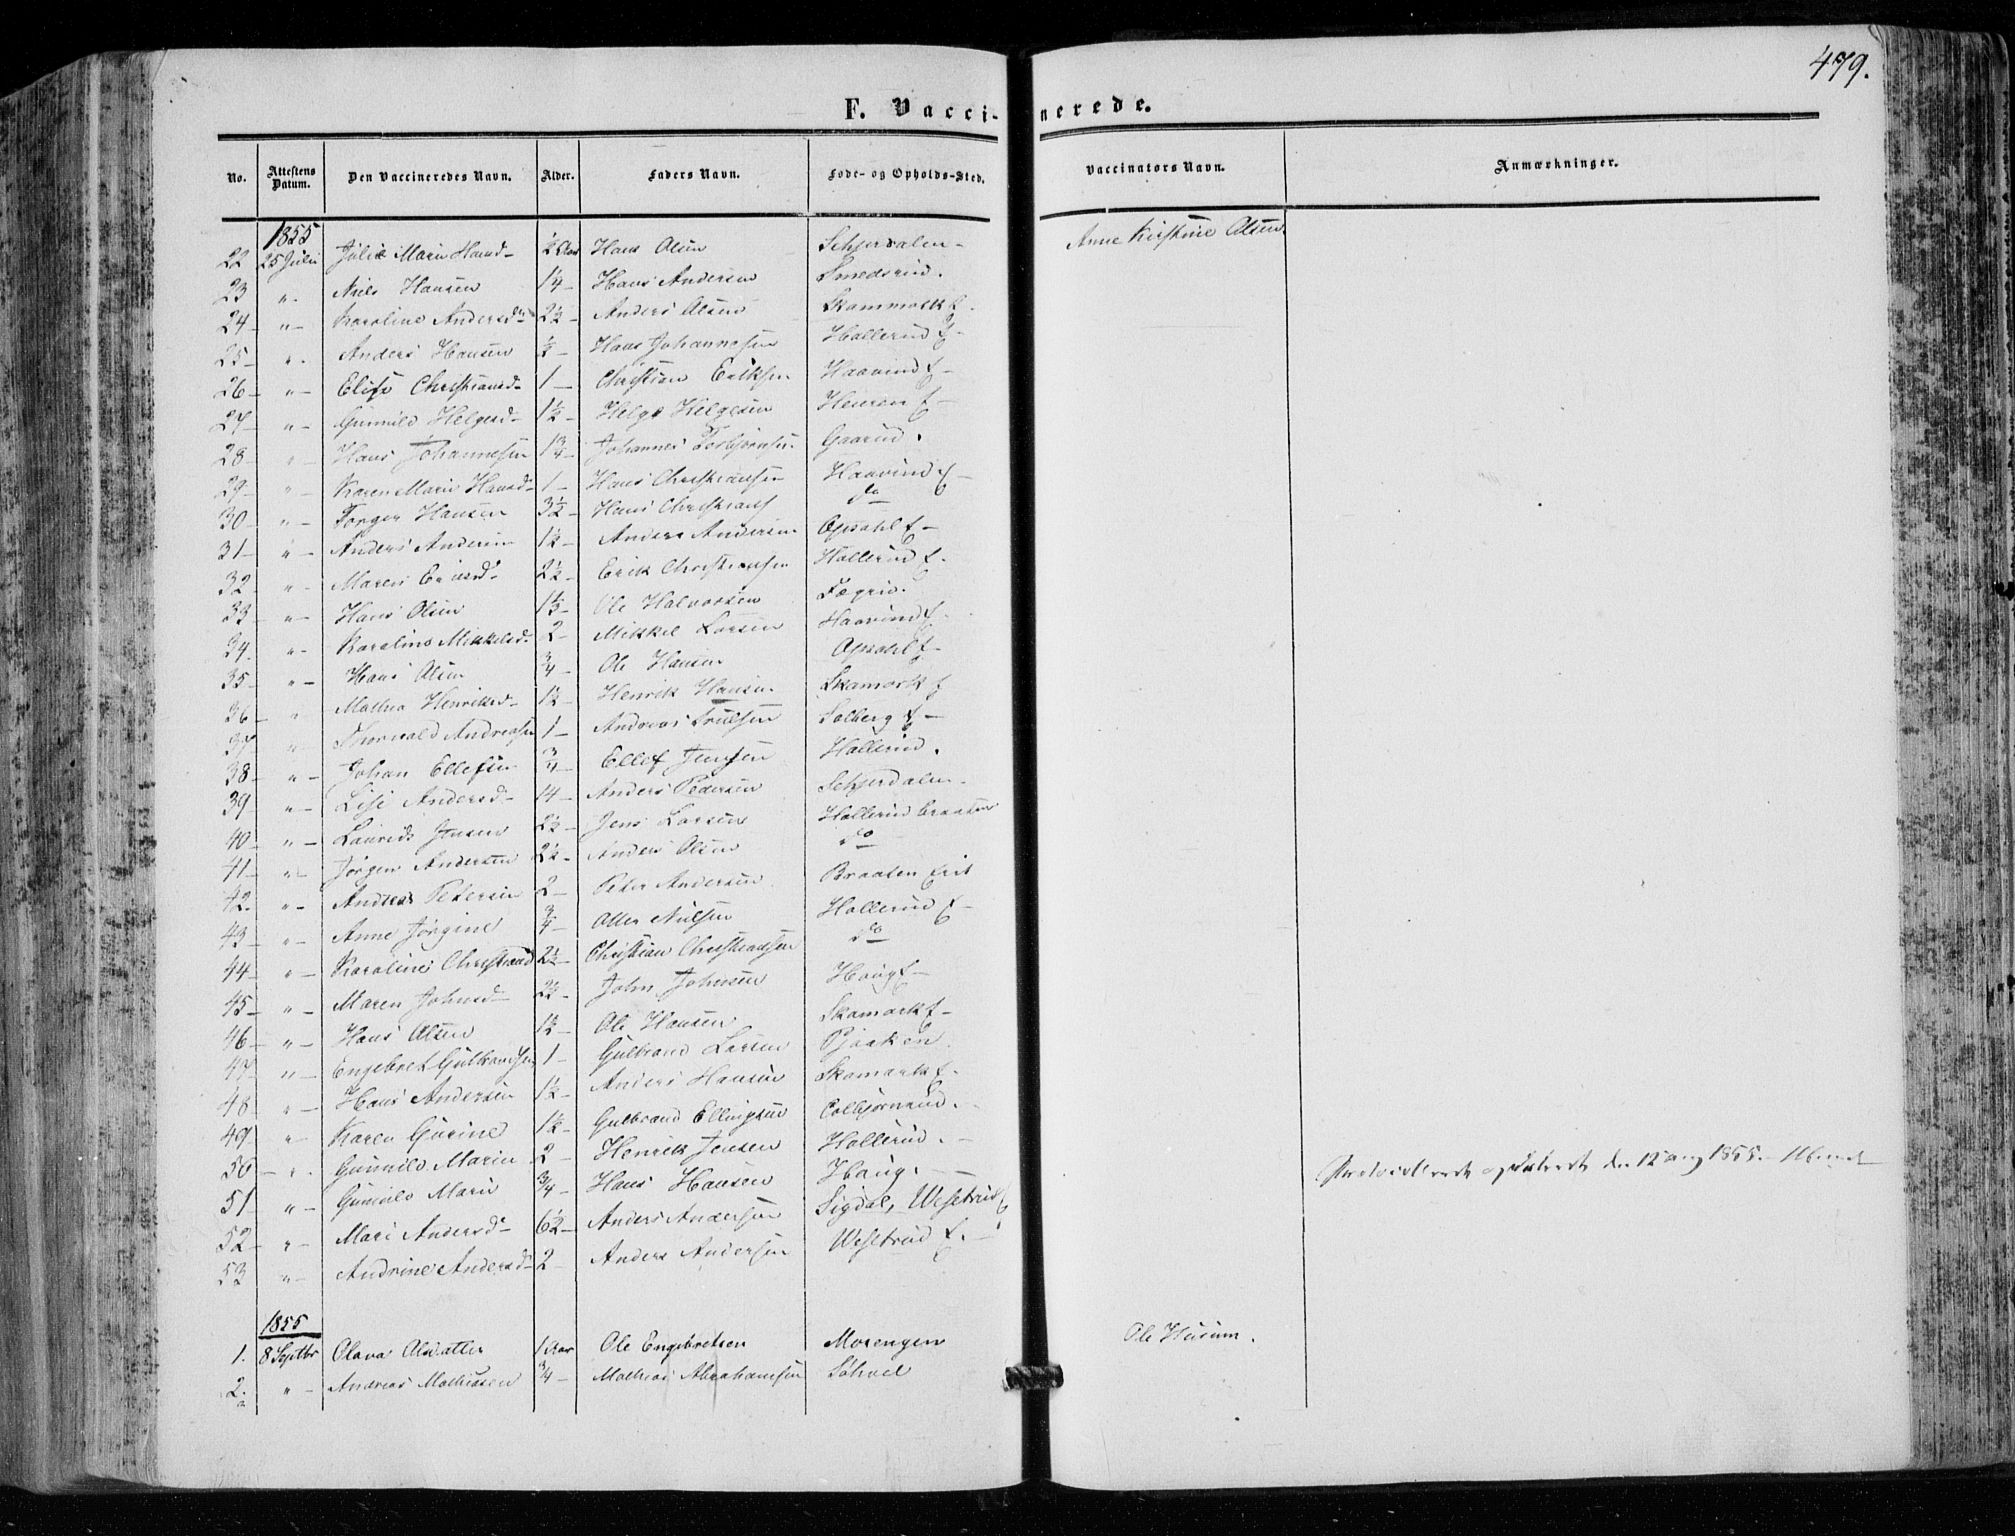 479.
F. Vaccinerede.
No. Attestens Datum. Den Vaccineredes Navn. Alder. Faders Navn. Føde- og Opholds-Sted. Vaccinators Navn. Anmærkninger.
1855
22 25 Julii Julie Marie Hansd- ½ Aar Hans Olsen Schjerdalen- Anne Kirstine Olsen.
23 " - Niels Hansen 14 - Hans Andersen Smedsrud.
24 - " - Karoline Andersd- 2½ - Anders Olsen Skammark E.
25 - " . Anders Hansen ½ - Hans Johannesen Hallerud E -
26 - " - Elise Christiansd- 1 - Christian Eriksen Haavind E -
27 - " - Gunnild Helgesd- 1½ - Helge Helgesen Henren E -
28 - " - Hans Johannesen 1¾ - Johannes Torbjørnsen Gaarud.
29 - " - Karen Marie Hansd- 1 - Hans Christiansen Haavind E -
30 - " - Torger Hansen 3½ - Hans Christians do
31 - " - Anders Andersen 1½ - Anders Andersen Opsahl E -
32 - " - Maren Eriksd- 2½ - Erik Christiansen Hallerud E.
33 - " - Hans Olsen 1⅓ - Ole Halvorsen Fegrie.
34. " - Karoline Mikkelsd- 2 - Mikkel Larsen Haavind E.
35 - " - Hans Olsen ¾ - Ole Hansen Opsahl E -
36 - " Mathea Henriksd- 1½ - Henrik Hansen Skamark E
37 " Thorvald Andreasen 1 - Andreas Trulsen Solberg E -
38 - " - Johan Ellefsen ¾ - Ellef Jensen Hallerud.
39 " - Lise Andersd- 14 - Anders Pedersen Schjerdalen-
40 - " - Laurids Jensen 2½ - Jens Larsen Hallerud Braaten
41 - " - Jørgen Andersen 2½ - Anders Olsen do
42. " - Andreas Petersen 2 - Peter Andersen Braaten Erit
43 - " - Anne Jørgine ¾ - Otter Nielsen Hallerud E -
44 - " - Karoline Christiansd 2½ - Christian Christiansen do
45 - " - Maren Johnsd- 2½ - John Johnsen Haug E -
46 - " - Hans Olsen 1½ - Ole Hansen Skamark E -
47 - " - Engebret Gulbrandsen 1 - Gulbrand Larsen Pjaaken
48 - " - Hans Andersen 1½ - Anders Hansen Skamark E.
49 " Karen Gurine 1½ - Gulbrand Ellingsen Colbjørnrud.
50 - " . Gunnild Marie 2 - Henrik Jensen Hallerud. -
51 - " - Gunnild Marie ¾ - Hans Hansen Haug. - den 12 aug 1855.
52 - " - Mari Andersd- 6½ - Anders Andersen Sigdal, Wesetrud E
53 " - Andrine Andersd- 2 - Anders Andersen Wesetrud E. -
1855
1. 8 Septbr Olava Olsdatter 1 Aar Ole Engebretsen Morengen Ole Husum.
2. " - Andreas Mathiasen ¾ - Mathias Abrahamsen Søhvel